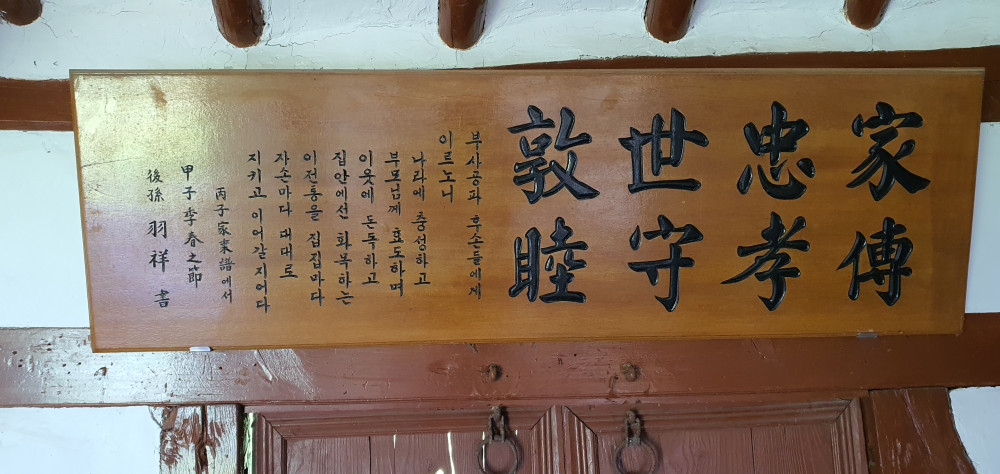 家傳
忠孝
世守
敦睦
부사공과 후손들에게
이르노니
나라에 충성하고
부모님께 효도하며
이웃에 돈독하고
집안에선 화목하는
이전통을 집집마다
자손마다 대대로
지키고 이어갈지어다
丙子家乘譜에서
甲子季春之節
後孫 羽祥 書